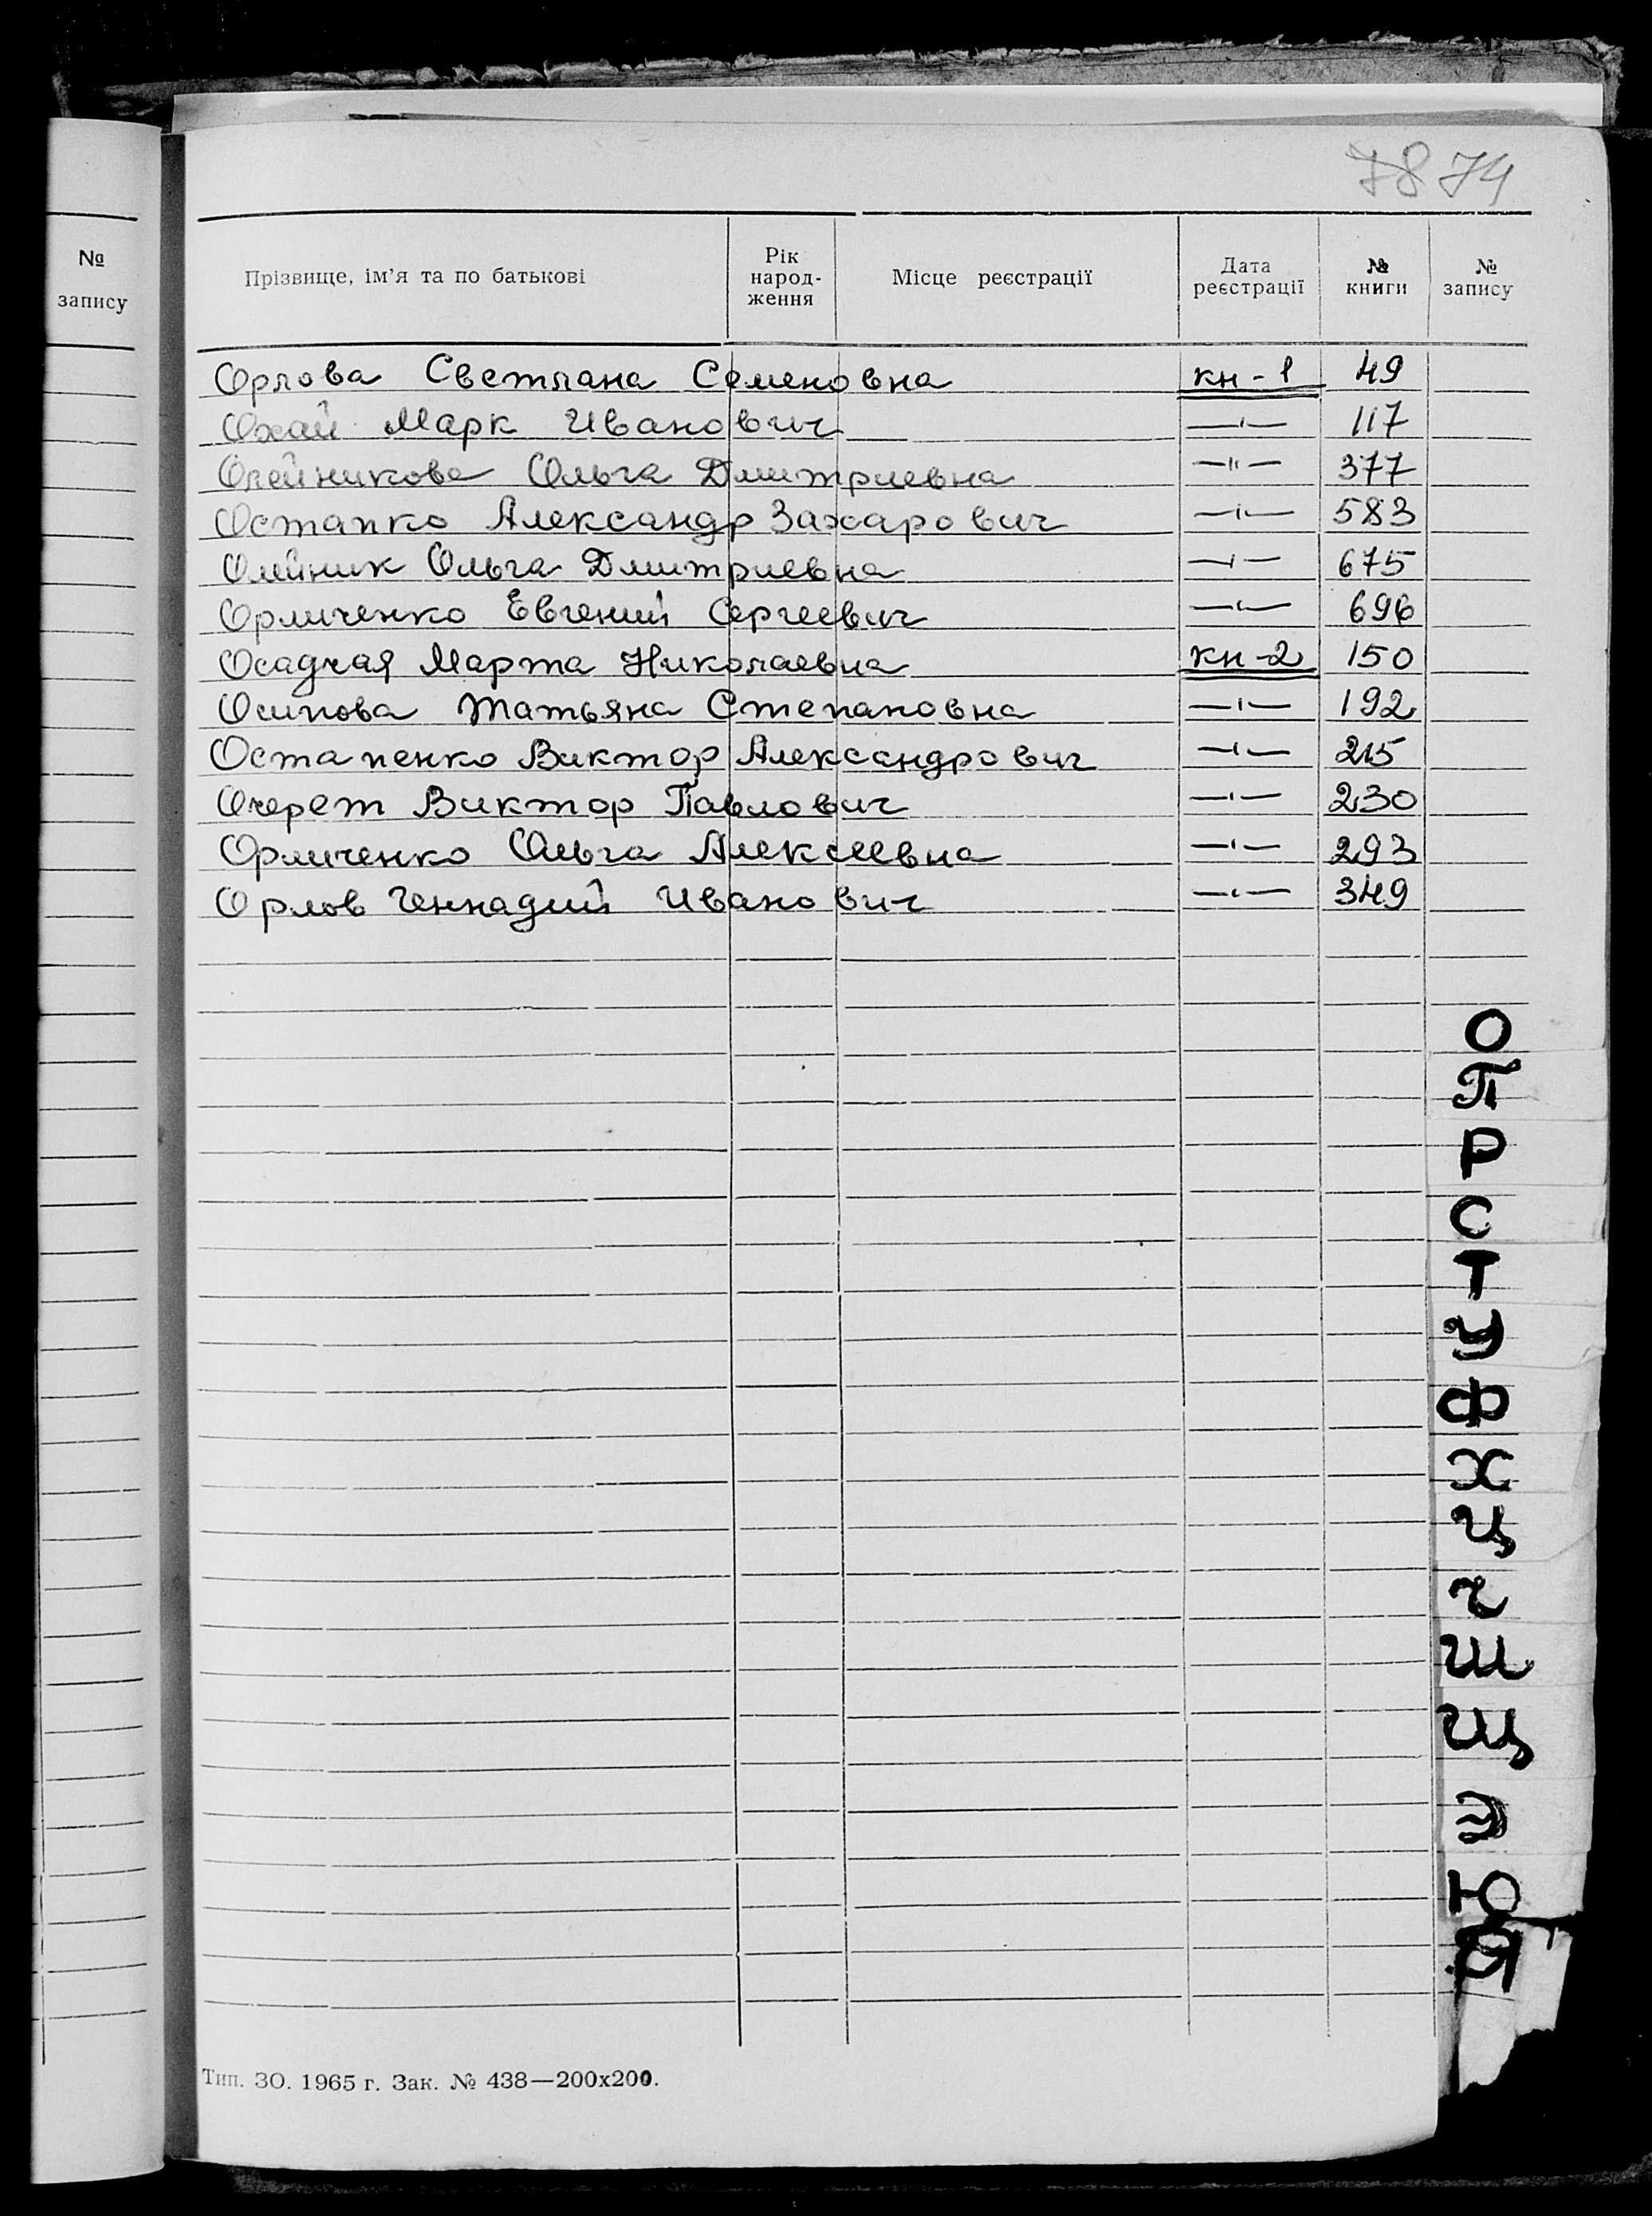 7874
№ запису
Прізвище, ім'я та по батькові
Рік народ-ження
Місце реєстрації
Дата реєстрації
№ книги
№ запису
Орлова Светлана Семеновна кн-1 49
Охай Марк Иванович —"— 117
Олейникова Ольга Дмитриевна —"— 377
Остапко Александр Захарович —"— 583
Олейник Ольга Дмитриевна —"— 675
Орличенко Евгений Сергеевич —"— 696
Осадчая Марта Николаевна кн-2 150
Осипова Татьяна Степановна —"— 192
Остапенко Виктор Александрович —"— 215
Очерет Виктор Павлович —"— 230
Орличенко Ольга Алексеевна —"— 293
Орлов Геннадий Иванович —"— 349
О
П
Р
С
Т
У
Ф
Х
Ц
Ч
Ш
Щ
Э
Ю
Я
Тип. ЗО. 1965 г. Зак. № 438—200х200.